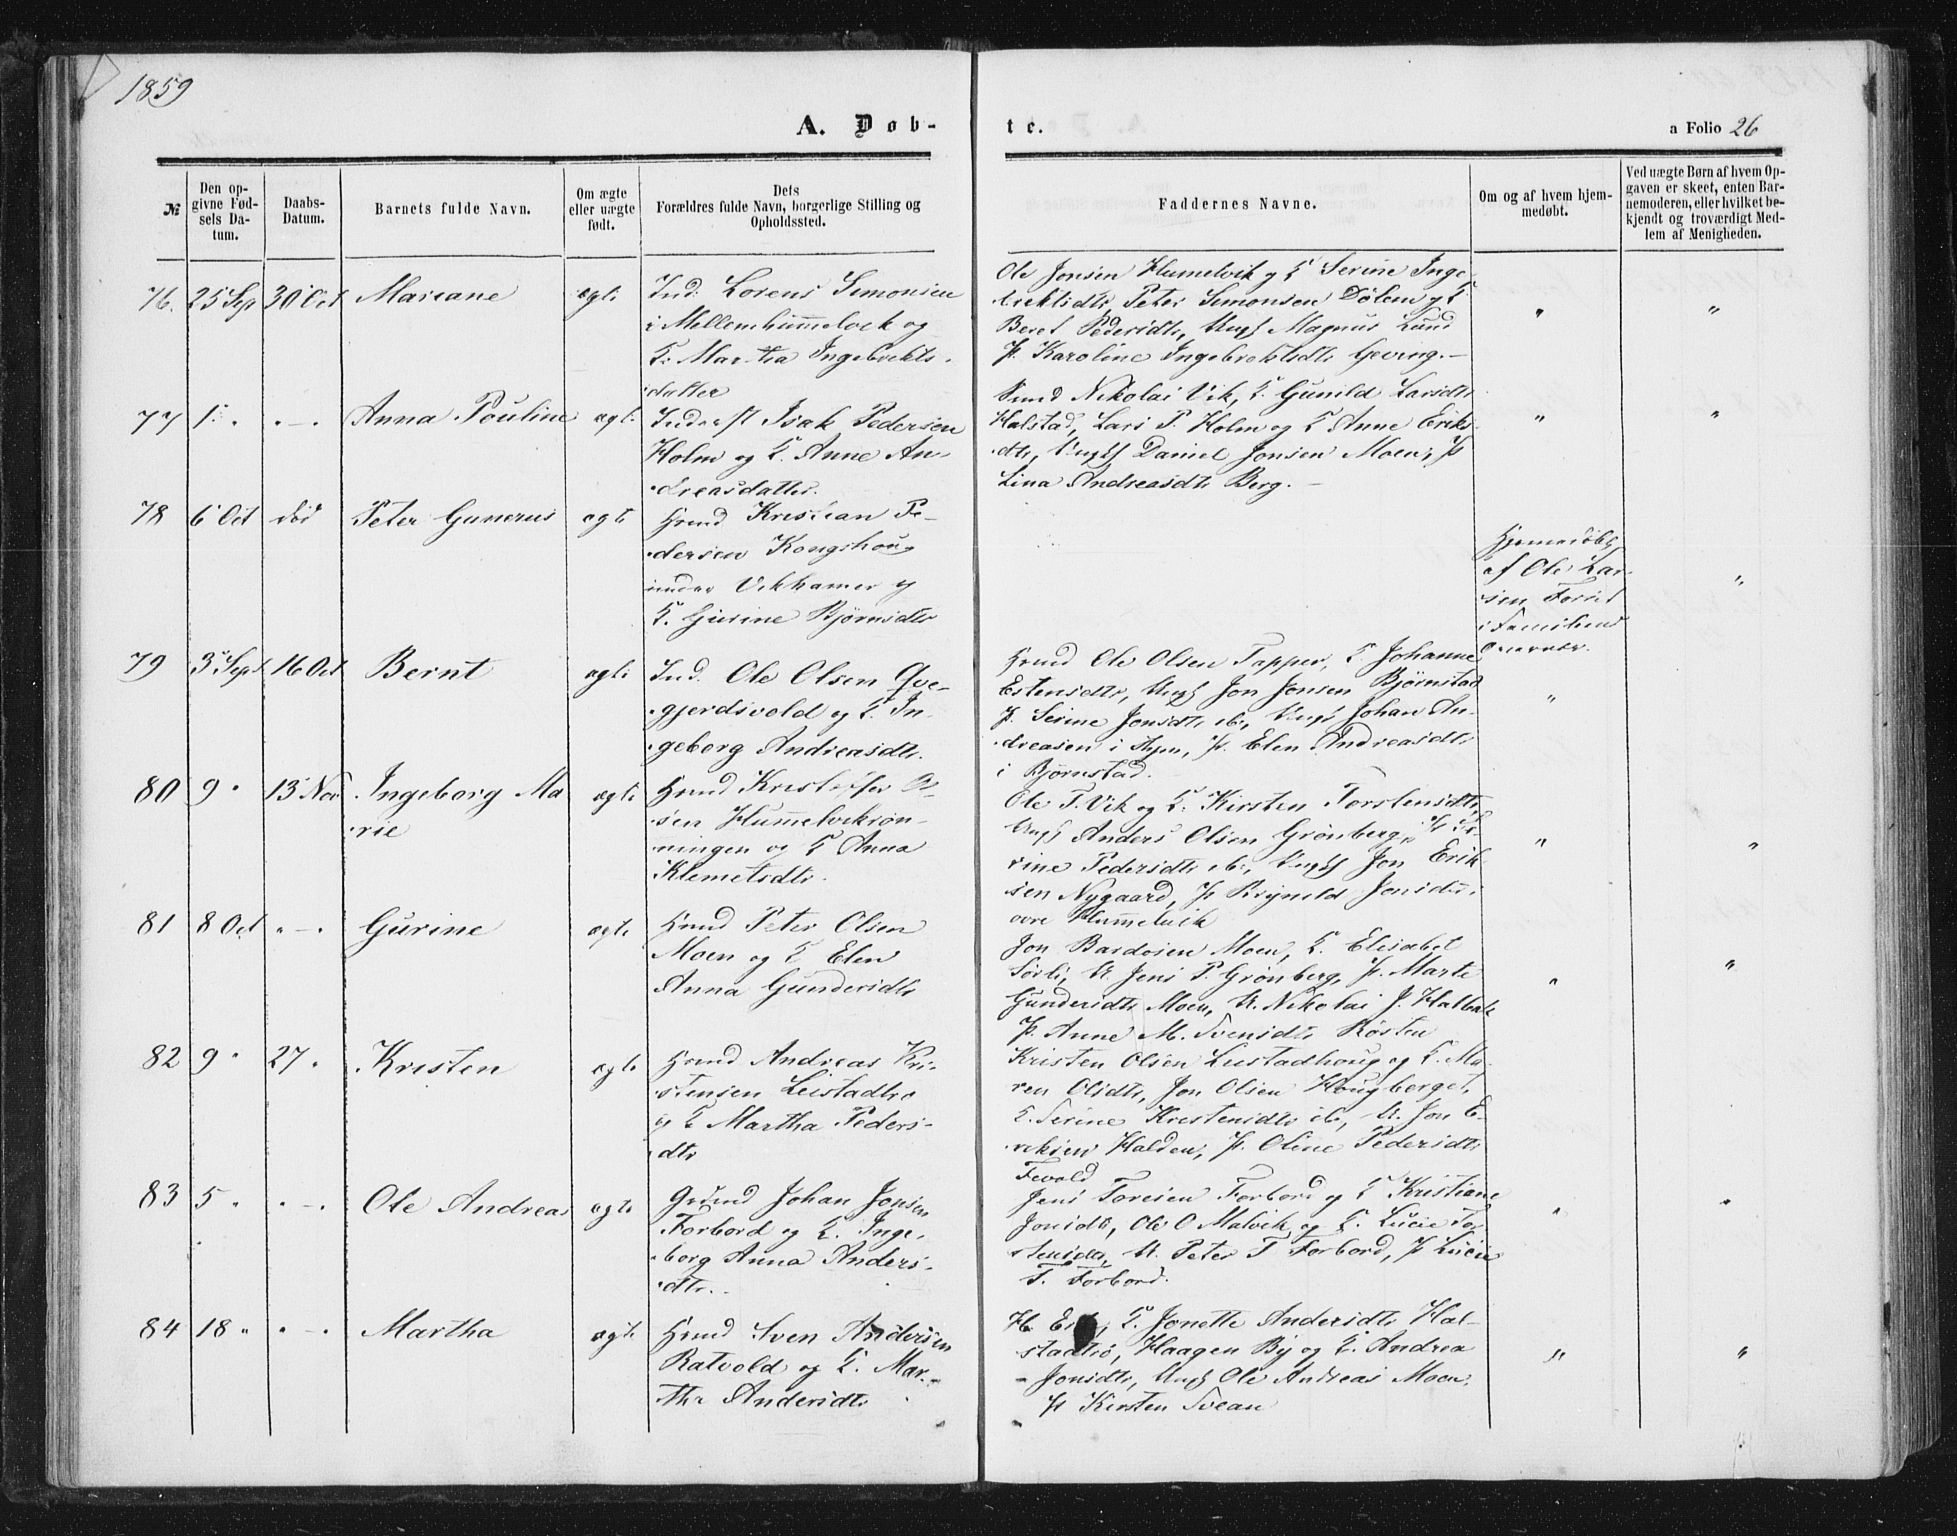 1859
A. Døb-
te.
a Folio 26
№
Den op-
givne Fød-
sels Da-
tum.
Daabs-
Datum.
Barnets fulde Navn.
Om ægte
eller uægte
født.
Dets
Forældres fulde Navn, borgerlige Stilling og
Opholdssted.
Faddernes Navne.
Om og af hvem hjem-
medøbt.
Ved uægte Børn af hvem Op-
gaven er skeet, enten Bar-
nemoderen, eller hvilket be-
kjendt og troværdigt Med-
lem af Menigheden.
76. 25 Sep 30 Oct Mariane ægte
Ind. Lorens Simonsen
i Mellemhummelvik og
K. Martha Ingebrikts-
datter
Ole Jonsen Humelvik og K Serine Inge-
briktsdtr, Peter Simonsen Dølem og K
Beret Pedersdtr, Ungk Magnus Lund
P. Karoline Ingebriktsdtr Geving.-
" "
77 1 " "-" Anna Pouline ægte
Inderst Isak Pedersen
Holm og K. Anne An-
dreasdatter.
Nikolai Vik, K. Gunild Larsdtr
Halstad, Lars P. Holm og K Anne Eriks-
dtr, Ungk Daniel Jonsen Moen, P
Lina Andreasdtr Berg.-
" "
78 6 Oct død Peter Gunerus ægte
Hmd Kristian Pe-
dersen Kongshoug
under Vikhamer og
K. Gurine Bjørnsdtr
Hjemmedøbt
af Ole Lar-
sen Forset
i Familiens
Overvær.
"
79 3 Sept 16 Oct Bernt ægte
Ind. Ole Olsen Qve-
gjerdsvold og K. In-
geborg Andreasdtr.
Hmd Ole Olsen Tapper, K. Johanne
Estensdtr, Ungk Jon Jonsen Bjørnstad
P. Serine Jonsdtr ib, Ungk Johan An-
dreasen i Hyen, P. Elen Andreasdtr
i Bjørnstad.
"
80 9 " 13 Nov Ingeborg Ma
rie ægte
Hmd Kristoffer O-
sen Humelvikrøn-
ningen og K Anna
Klemetsdtr.
Ole T. Vik og K. Kirsten Torstensdtr,
Ungk Anders Olsen Grønberg, P Se-
rine Pedersdtr ib, Ungk Jon Erik-
sen Nygaard, P Jonsdtr
øvre Hummelvik
" "
81 8 Oct "-" Gurine ægte
Hmd Peter Olsen
Moen og K Elen
Anna Gundersdtr
Jon Bardosen Moen, K. Elisabet
Sørli, U. Jens P. Grønberg, P. Marte
Gundersdtr Moen, U. Nikolai J. Halbak
P. Anne M. Svensdtr Røsten
" "
82 9 " 27 " Kristen ægte
Hmd Andreas Kri-
stensen Leistadtrø
og K Martha Peders-
dtr
Kristen Olsen Leistadhoug og K. Ma-
ren Olsdtr, Jon Olsen Hougberget,
K. Serine Kristensdtr ib, U. Jon E-
riksen Halden, P. Oline Pedersdtr
Fevold
83 5 " "-" Ole Andreas ægte
Gmd Johan Jonsen
Forbord og K. Inge-
borg Anna Anders-
dtr.
Jens Toresen Forbord og K Kristiane
Jonsdtr, Ole O Malvik og K. Lucie To-
stensdtr, U. Peter T Forbord, P Lucie
T. Forbord.
" "
84 18 " "-" Martha ægte
Hmd Sven Andersen
Ratvold og K. Mar-
tha Andersdtr
H. K. Jonette Andersdtr Hal-
stadtrø, Haagen By og K. Andrea
Jonsdtr, Ungk Ole Andreas Moen,
P Kirsten Svean
" "